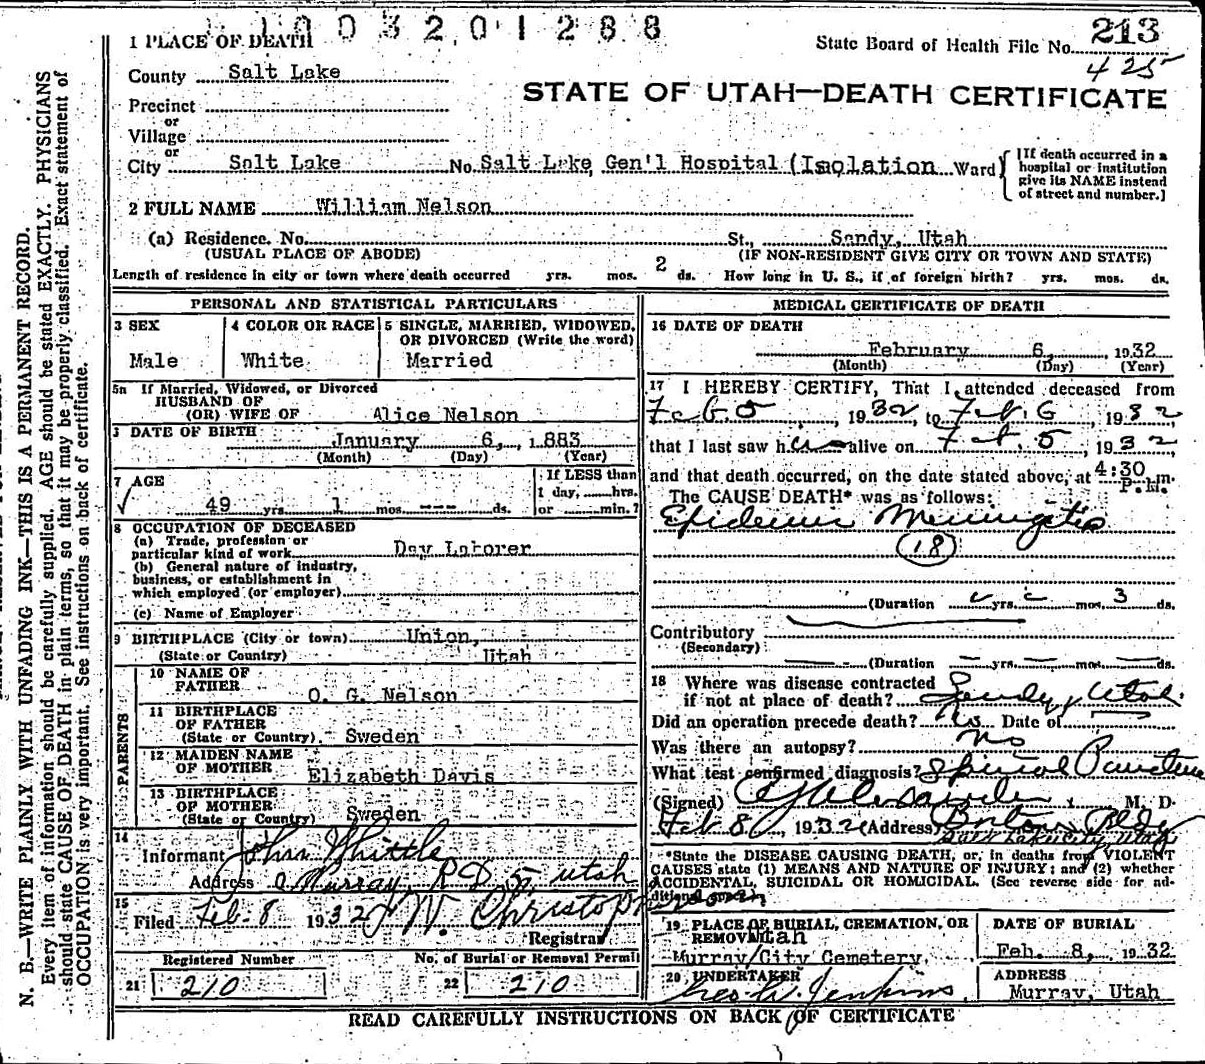 1003201288
1 PLACE OF DEATH
State Board of Health File No. 213
425
County Salt Lake
STATE OF UTAH—DEATH CERTIFICATE
Precinct
or
Village
or
City Salt Lake No. Salt Lake Gen'l Hospital (Isolation Ward)
[If death occurred in a
hospital or institution
give its NAME instead
of street and number.]
2 FULL NAME William Nelson
(a) Residence. No. St., Sandy, Utah
(USUAL PLACE OF ABODE) (IF NON-RESIDENT GIVE CITY OR TOWN AND STATE)
Length of residence in city or town where death occurred yrs. mos. 2 ds. How long in U. S., if of foreign birth? yrs. mos. ds.
PERSONAL AND STATISTICAL PARTICULARS
3 SEX
Male
4 COLOR OR RACE
White
5 SINGLE, MARRIED, WIDOWED,
OR DIVORCED (Write the word)
Married
5a If Married, Widowed, or Divorced
HUSBAND OF
(OR) WIFE OF Alice Nelson
DATE OF BIRTH January 6, 1883
(Month) (Day) (Year)
7 AGE
49 yrs. 1 mos. --- ds.
If LESS than
1 day, hrs.
or min.?
8 OCCUPATION OF DECEASED
(a) Trade, profession or
particular kind of work Day Laborer
(b) General nature of industry,
business, or establishment in
which employed (or employer)
(c) Name of Employer
9 BIRTHPLACE (City or town) Union,
(State or Country) Utah
PARENTS
10 NAME OF
FATHER O. G. Nelson
11 BIRTHPLACE
OF FATHER
(State or Country) Sweden
12 MAIDEN NAME
OF MOTHER Elizabeth Davis
13 BIRTHPLACE
OF MOTHER
(State or Country) Sweden
14
Informant John Whittle
Address Murray, R D 5, Utah
15
Filed Feb-8 1932 J W. Christopherson
Registrar
Registered Number No. of Burial or Removal Permit
21 210 22 210
MEDICAL CERTIFICATE OF DEATH
16 DATE OF DEATH
February 6, 1932
(Month) (Day) (Year)
17 I HEREBY CERTIFY, That I attended deceased from
Feb. 5 1932, to Feb. 6, 1932
that I last saw h alive on Feb. 5, 1932
and that death occurred, on the date stated above, at 4:30 P.M. m.
The CAUSE DEATH* was as follows:
Epidemic Meningitis
(18)
(Duration yrs. mos. 3 ds.
Contributory
(Secondary)
(Duration — yrs. — mos. — ds.
18 Where was disease contracted
if not at place of death? Sandy, Utah.
Did an operation precede death? No Date of
Was there an autopsy? no
What test confirmed diagnosis? Spinal Puncture
(Signed) M. D.
Feb 8, 1932 (Address) Boston Bldg
Salt Lake City Utah
*State the DISEASE CAUSING DEATH, or, in deaths from VIOLENT
CAUSES state (1) MEANS AND NATURE OF INJURY; and (2) whether
ACCIDENTAL, SUICIDAL OR HOMICIDAL. (See reverse side for ad-
ditional
19 PLACE OF BURIAL, CREMATION, OR
REMOVAL Utah
Murray City Cemetery,
DATE OF BURIAL
Feb. 8, 1932
20 UNDERTAKER
Geo. W. Jenkins
ADDRESS
Murray, Utah
READ CAREFULLY INSTRUCTIONS ON BACK OF CERTIFICATE
N. B.—WRITE PLAINLY WITH UNFADING INK—THIS IS A PERMANENT RECORD.
Every item of information should be carefully supplied. AGE should be stated EXACTLY. PHYSICIANS
should state CAUSE OF DEATH in plain terms, so that it may be properly classified. Exact statement of
OCCUPATION is very important. See instructions on back of certificate.